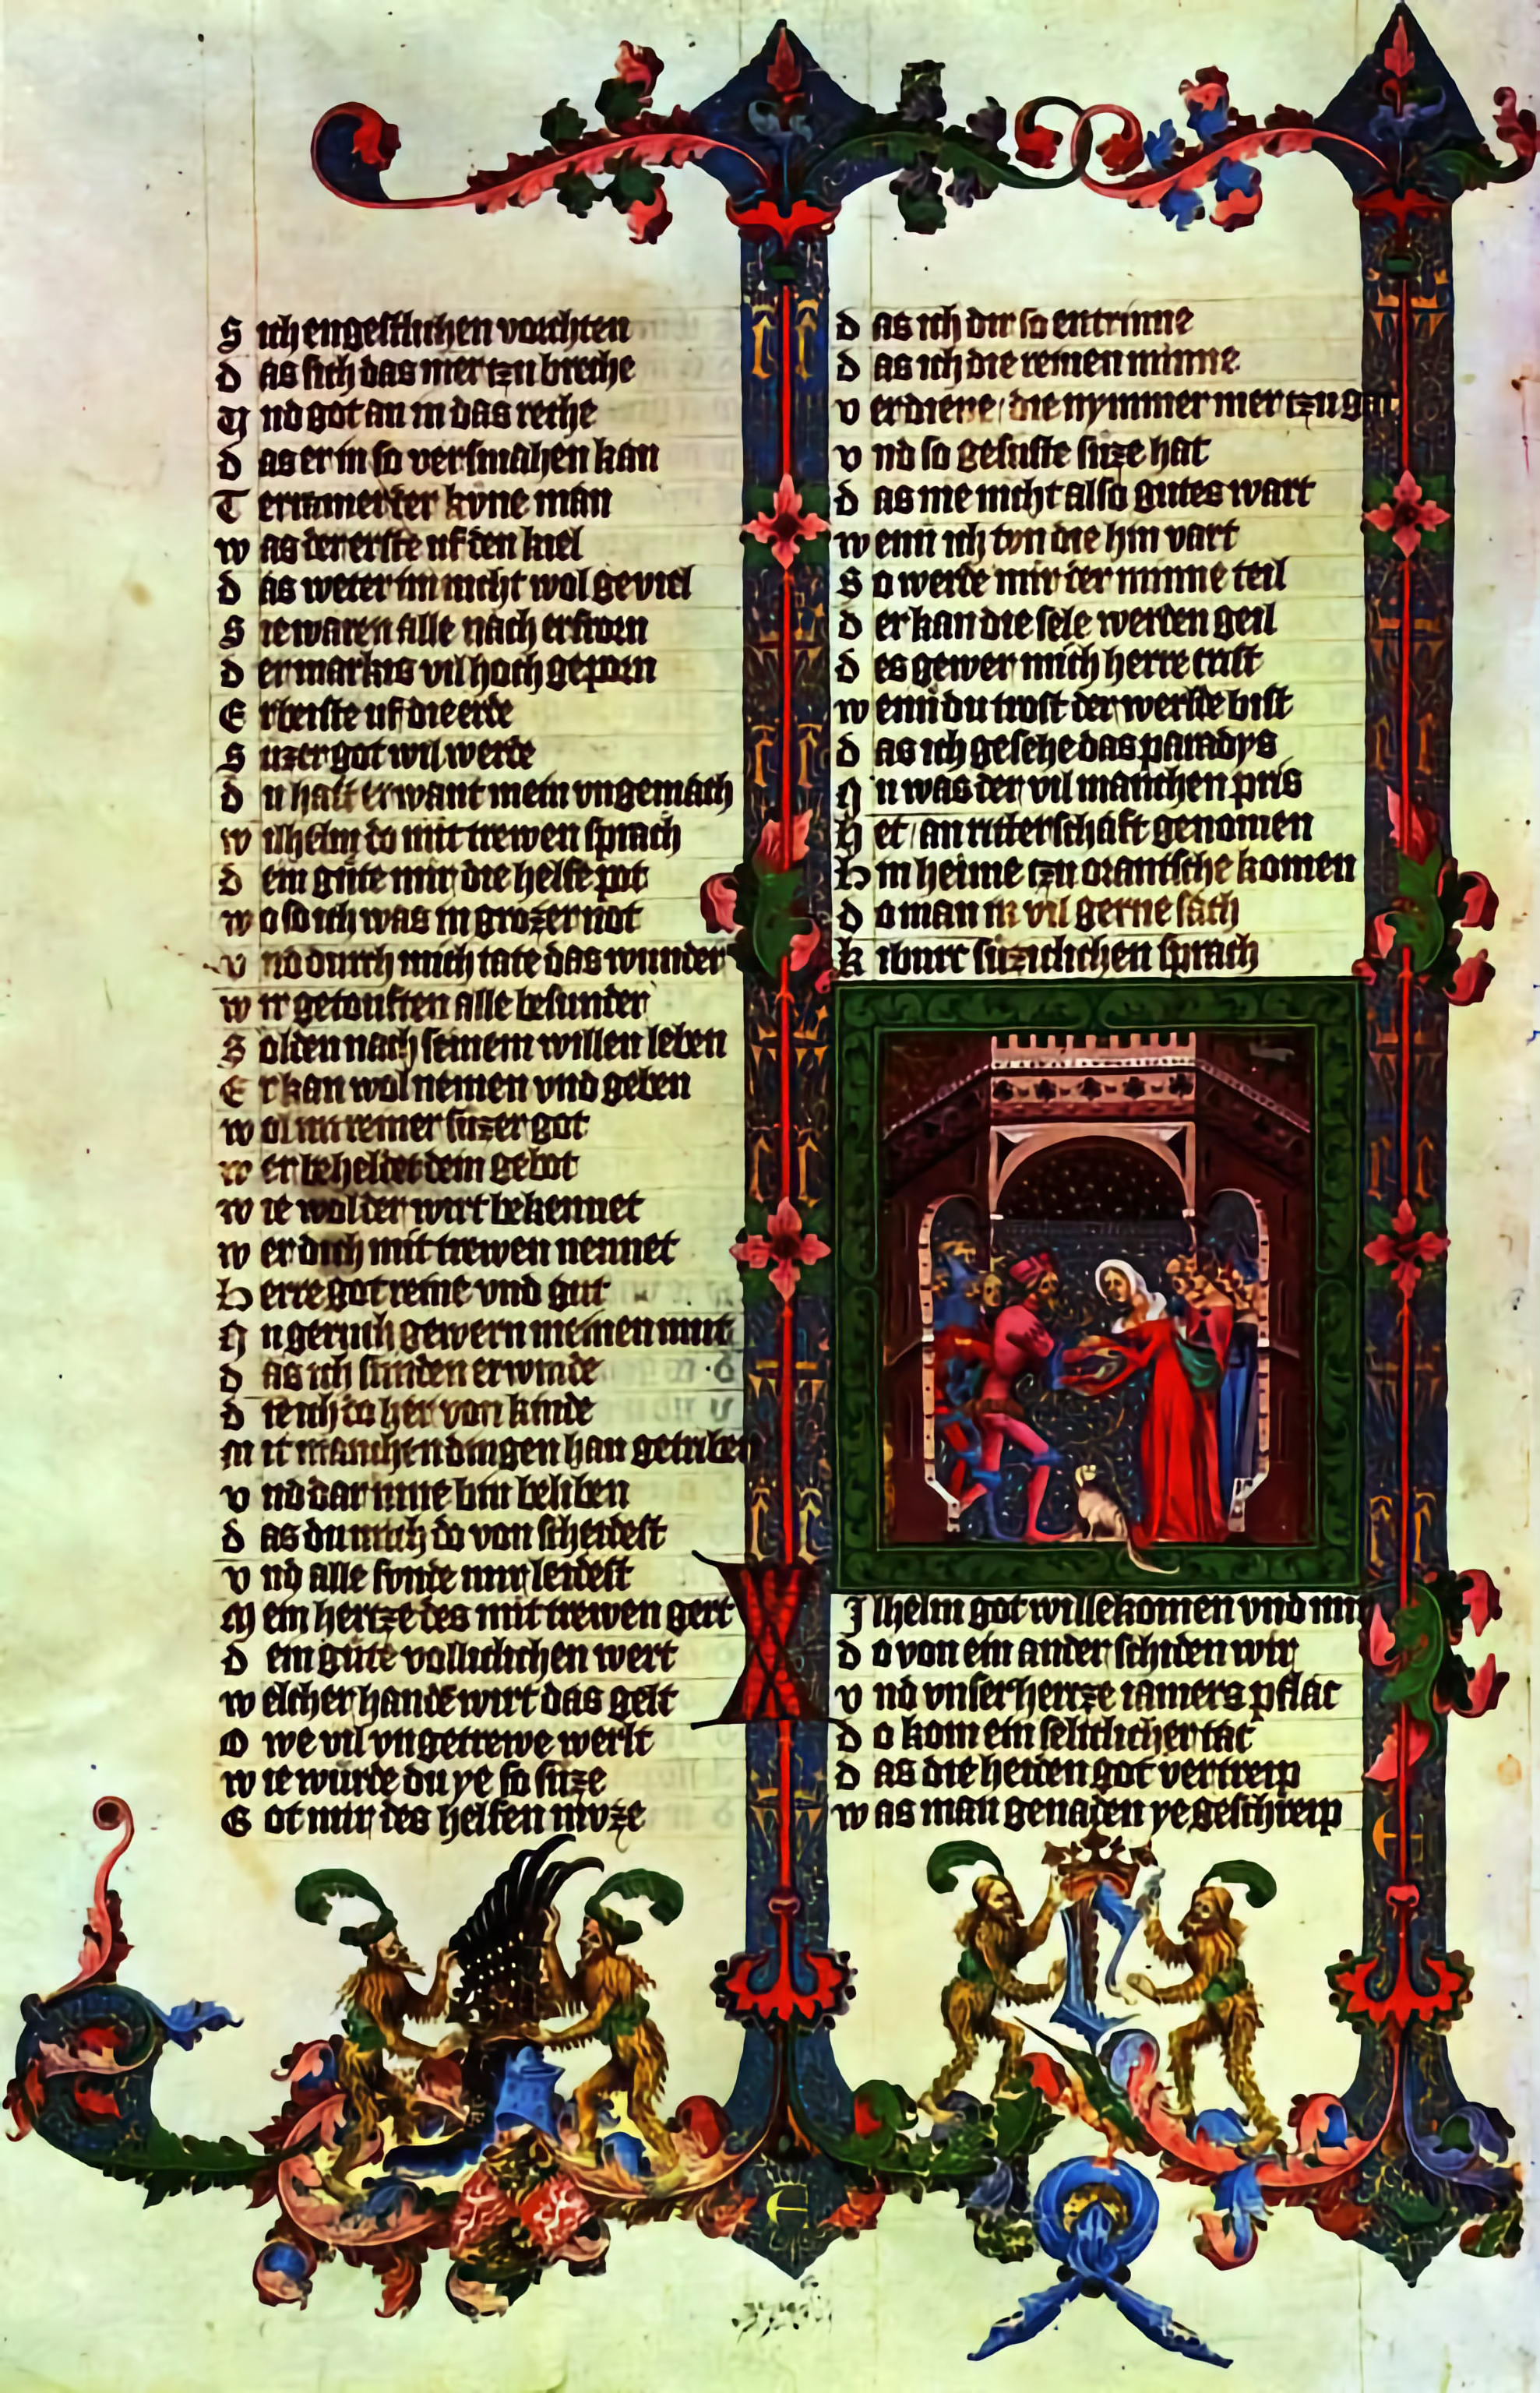 S ich engestlichen vorchten
d as sich das mer tzu breche
V nd got an in das reche
d as er in so versmahen kan
T erramer der kvne man
w as der erste uf den kiel
d as weter im nicht wol geviel
S ie waren alle nach erkorn
d er markis vil hoch geporn
E rbeiste uf die erde
S uzer got wil werde
d u hast erwant mein vngemach
w ilhelm do mit trewen sprach
d ein gute mir die helfe pot
w o so ich was in grozer not
v nd durch mich tate das wunder
w ir getouften alle besunder
S olden nach seinem willen leben
E r kan wol nemen vnd geben
w ol im reiner suzer got
w er beheldet dein gebot
w ie wol der wirt bekennet
w er dich mit trewen nennet
H erre got reine vnd gut
N u geruch gewern meinen mut
d as ich sunden erwinde
d ie ich do her von kinde
M it manchen dingen han getriben
v nd dar inne bin beliben
d as du mich do von scheidest
v nd alle sunde mir leidest
M ein hertze des mit trewen gert
d ein gute volliclichen wert
w elcher hande wirt das gelt
O we vil vngetrewe werlt
w ie wurde du ye so suze
G ot mir des helfen mvze
d as ich dir so entrinne
d as ich die reinen minne
v erdiene die nymmer mer tzu gat
v nd so gesuste suze hat
d as me nicht also gutes wart
w enn ich tvn die hin vart
S o werde mir der minne teil
d er kan die sele werden geil
d es gewer mich herre crist
w enn du trost der werlde bist
d as ich gesehe das paradys
N u was der vil manchen pris
H et an ritterschaft genomen
H in heime tzu orantsche komen
d o man in vil gerne sach
k iburc suziclichen sprach
W Ilhelm got willekomen vnd mir
d o von ein ander schiden wir
v nd vnser hertze iamers pflac
d o kom ein selticlicher tac
d as die heiden got vertreip
w as man genaden ye geschreip